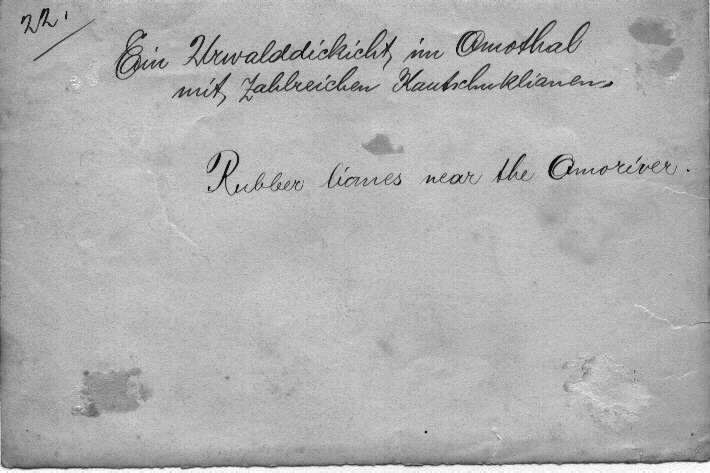 22.
Ein Urwalddickicht im Amothal
mit zahlreichen Kautschuklianen.
Rubber lianes near the Amoriver.